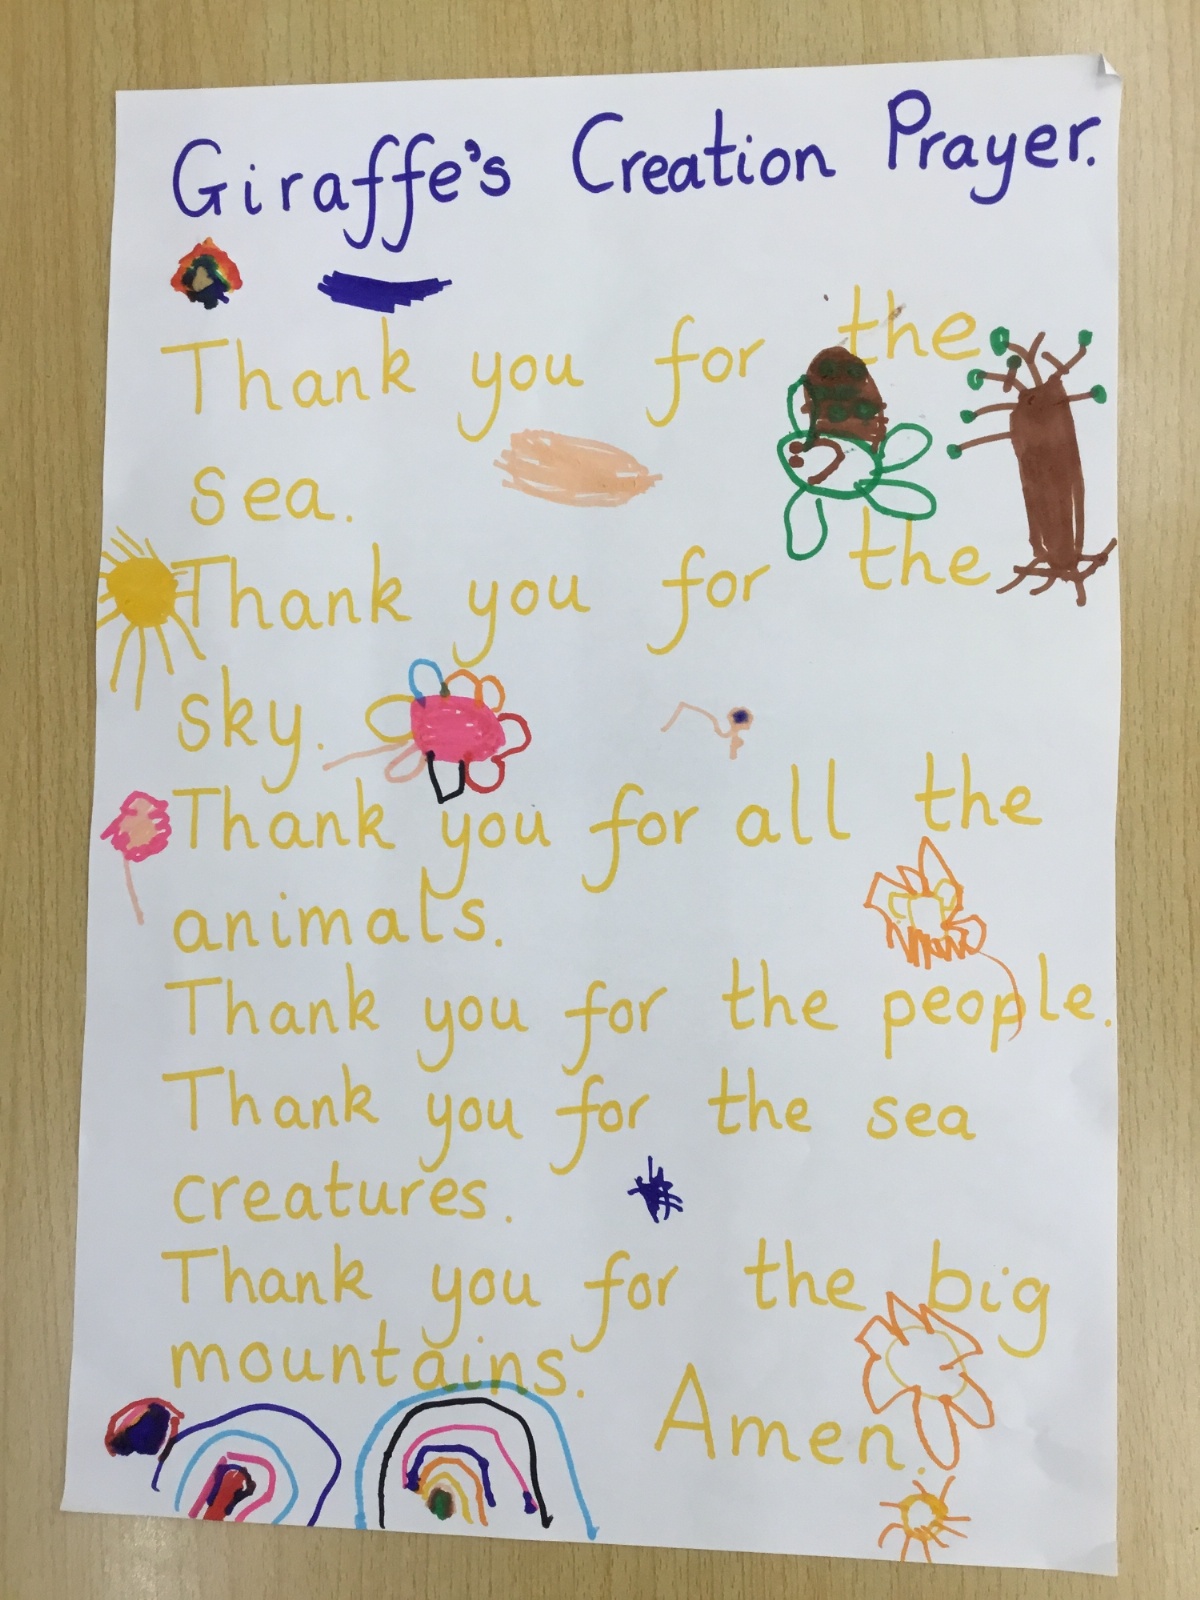 Giraffe's Creation Prayer.
Thank you for the
sea.
Thank you for the
sky.
Thank you for all the
animals.
Thank you for the people.
Thank you for the sea
creatures.
Thank you for the big
mountains.
Amen.